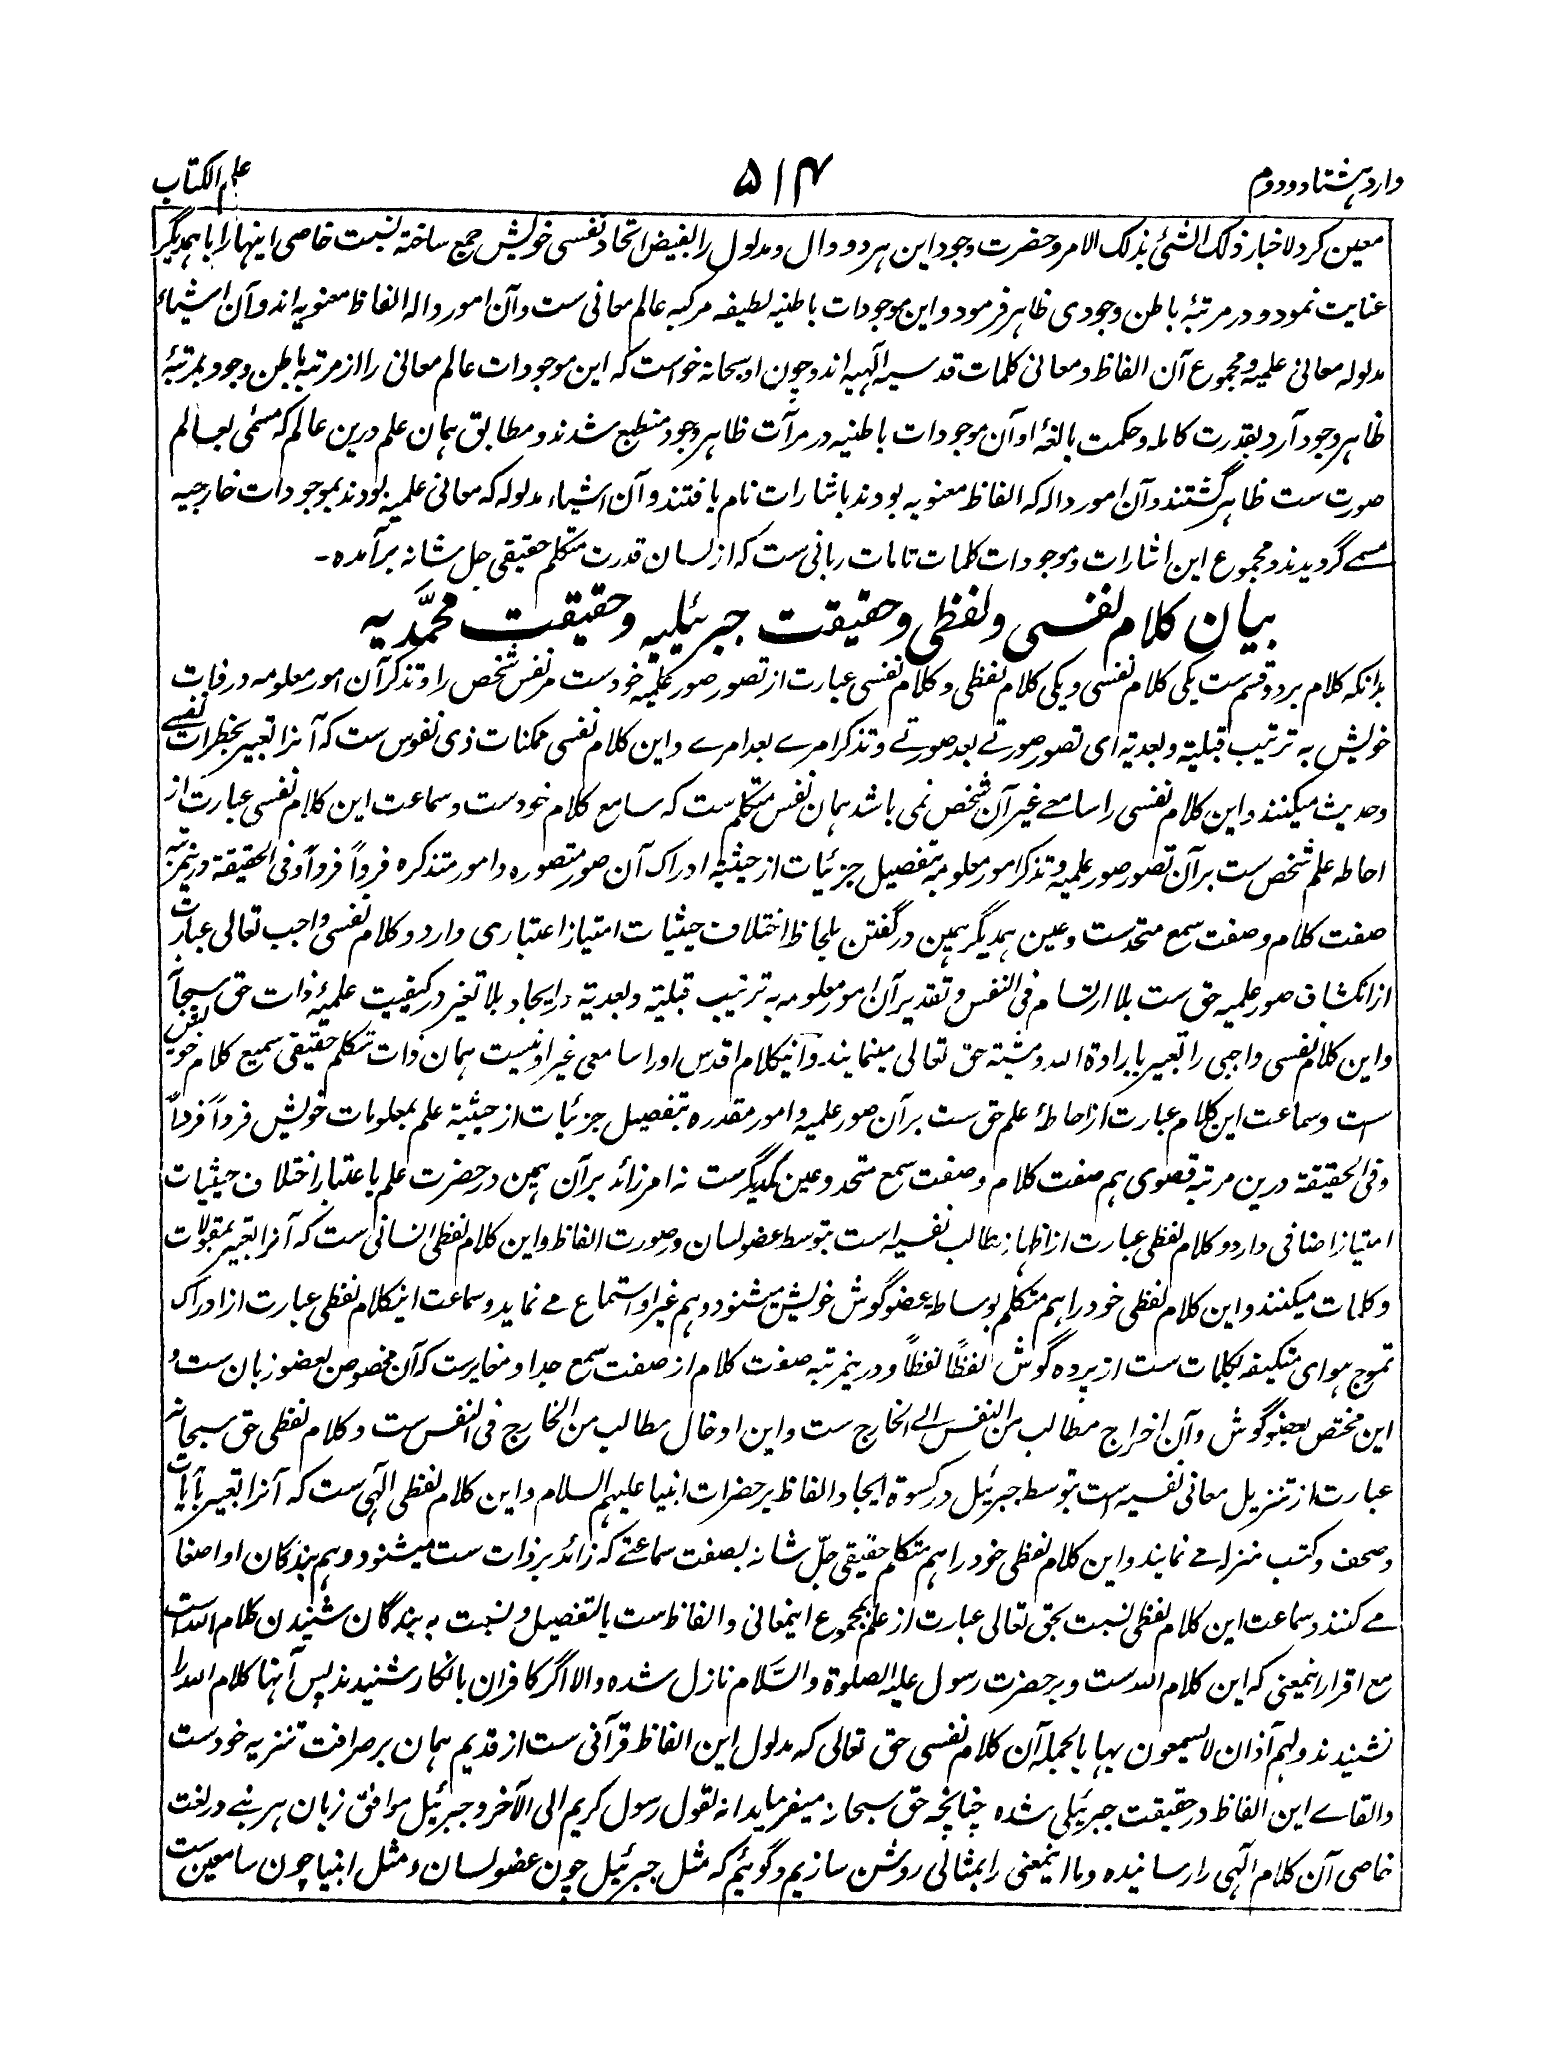 وارد ہشتاد و دوم
۵۱۴
علم الکتاب
معین کرد لاخبار ذلک الشئ بذلک الامر و حضرت وجود این ہر دو دال و مدلول را بفیض اتحاد نفسی خویش جمع ساختہ نسبت خاصی اینہا را با ہمدیگر
عنایت نمود و در مرتبۂ باطن وجودی ظاہر فرمود و این موجودات باطنیہ لطیفہ مرکبہ عالم معانی ست و آن امور دالہ الفاظ معنویہ اند و آن اشیاء
مدلولہ معانی علمیہ و مجموع آن الفاظ و معانی کلمات قدسیہ الٓہیہ اند و چون او سبحانہ خواست کہ این موجودات عالم معانی را از مرتبۂ باطن وجود بمرتبۂ
ظاہر وجود آرد بقدرت کاملہ و حکمت بالغۂ او آن موجودات باطنیہ در مرآت ظاہر وجود منطبع شدند و مطابق ہمان علم درین عالم کہ مسمی بعالم
صورت ست ظاہر گشتند و آن امور دالہ کہ الفاظ معنویہ بودند باشارات نام یافتند و آن اشیاء مدلولہ کہ معانی علمیہ بودند بموجودات خارجیہ
مسمے گردیدند و مجموع این اشارات و موجودات کلمات تامات ربانی ست کہ از لسان قدرت متکلم حقیقی جل شانہ برآمدہ ۔
بیان کلام نفسی و لفظی و حقیقت جبرئیلیہ و حقیقت محمّدیہ
بدانکہ کلام بر دو قسم ست یکی کلام نفسی و یکی کلام لفظی و کلام نفسی عبارت از تصور صور علمیہ خود ست مر نفس شخص را و تذکر آن امور معلومہ در ذات
خویش بہ ترتیب قبلیتہ و بعدیتہ ای تصور صورتے بعد صورتے و تذکر امرے بعد امرے و این کلام نفسی ممکنات ذی نفوس ست کہ آنرا تعبیر بخطرات نفسے
و حدیث میکنند و این کلام نفسی را سامعے غیر آن شخص نمی باشد ہمان نفس متکلم ست کہ سامع کلام خود ست و سماعت این کلام نفسی عبارت از
احاطہ علم شخص ست بر آن تصور صور علمیہ و تذکر امور معلومہ بتفصیل جزئیات از حیثیتہ ادراک آن صور متصورہ و امور متذکرہ فرداً فرداً و فی الحقیقۃ درینمرتبہ
صفت کلام و صفت سمع متحد ست و عین ہمدیگر ہمین در گفتن بلحاظ اختلاف حیثیات امتیاز اعتباری دارد و کلام نفسی واجب تعالی عبارت
از انکشاف صور علمیہ حق ست بلا ارتسام فی النفس و تقدیر آن امور معلومہ بہ ترتیب قبلیتہ و بعدیتہ در ایجاد بلا تغیر در کیفیت علمیۂ ذات حق سبحانہ
و این کلام نفسی واجبی را تعبیر بارادۃ اللہ و مشیتہ حق تعالی مینمایند ۔ و اینکلام اقدس او را سامعی غیر او نیست ہمان ذات متکلم حقیقی سمیع کلام نفس خویش
است و سماعت این کلام عبارت از احاطۂ علم حق ست بر آن صور علمیہ و امور مقدرہ بتفصیل جزئیات از حیثیتہ علم بمعلومات خویش فرداً فرداً
و فی الحقیقۃ درین مرتبہ قصوی ہم صفت کلام و صفت سمع متحد و عین یکدیگر ست نہ امر زائد بر آن ہمین در حضرت علم باعتبار اختلاف حیثیات
امتیاز اضافی دارد و کلام لفظی عبارت از اظہار مطالب نفسیہ است بتوسط عضو لسان و صورت الفاظ و این کلام لفظی انسانی ست کہ آنرا تعبیر بمقولات
و کلمات میکنند و این کلام لفظی خود را ہم متکلم بوساطۃ عضو گوش خویش میشنود و ہم غیر او استماع مے نماید و سماعت اینکلام لفظی عبارت از ادراک
تموج ہوای متکیفہ بکلمات ست از پردہ گوش لفظاً لفظاً و درینمرتبہ صفت کلام از صفت سمع جدا و مغایر ست کہ آن مخصوص بعضو زبان ست و
این مختص بعضو گوش و آن اخراج مطالب من النفس الے الخارج ست و این ادخال مطالب من الخارج فی النفس ست و کلام لفظی حق سبحانہ
عبارت از تنزیل معانی نفسیہ است بتوسط جبرئیل در کسوۃ ایجاد الفاظ بر حضرات انبیا علیہم السلام و این کلام لفظی الٓہی ست کہ آنرا تعبیر بآیات
و صحف و کتب منزلہ مے نمایند و این کلام لفظی خود را ہم متکلم حقیقی جلّ شانہ بصفت سماعتے کہ زائد بر ذات ست میشنود و ہم بندگان او اصغا
مے کنند و سماعت این کلام لفظی نسبت بحق تعالی عبارت از علم بمجموع اینمعانی و الفاظ ست بالتفصیل و نسبت بہ بندگان شنیدن کلام اللہ است
مع اقرار اینمعنی کہ این کلام اللہ ست و بر حضرت رسول علیہ الصلوۃ والسَّلام نازل شدہ والا اگر کافران بانکار شنیدند پس آنہا کلام اللہ را
نشنیدند و لہم آذان لا یسمعون بہا بالجملہ آن کلام نفسی حق تعالی کہ مدلول این الفاظ قرآنی ست از قدیم ہمان بر صرافت تنزیہ خود ست
و القاے این الفاظ در حقیقت جبرئیلی شدہ چنانچہ حق سبحانہ میفرماید انہ لقول رسول کریم الی الآخر و جبرئیل موافق زبان ہر نبے در لغت
خاصی آن کلام الٓہی را رسانیدہ و ما اینمعنی را بمثالی روشن سازیم و گوئیم کہ مثل جبرئیل چون عضو لسان و مثل انبیا چون سامعین ست